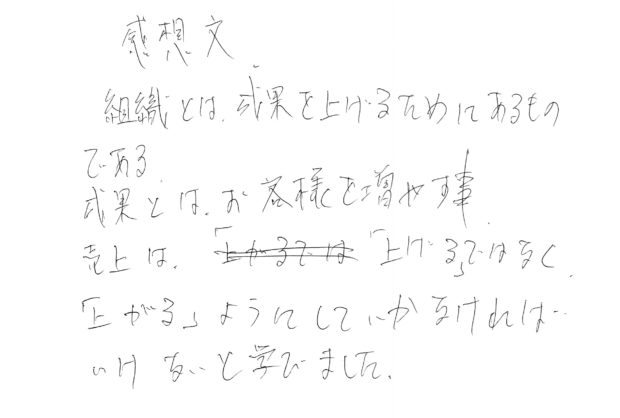 感想文
組織とは、成果を上げるためにあるもの
である
成果とは、お客様を増やす事
売上は、「上がるでは「上げる」ではなく、
「上がる」ようにしていかなければ
いけないと学びました。